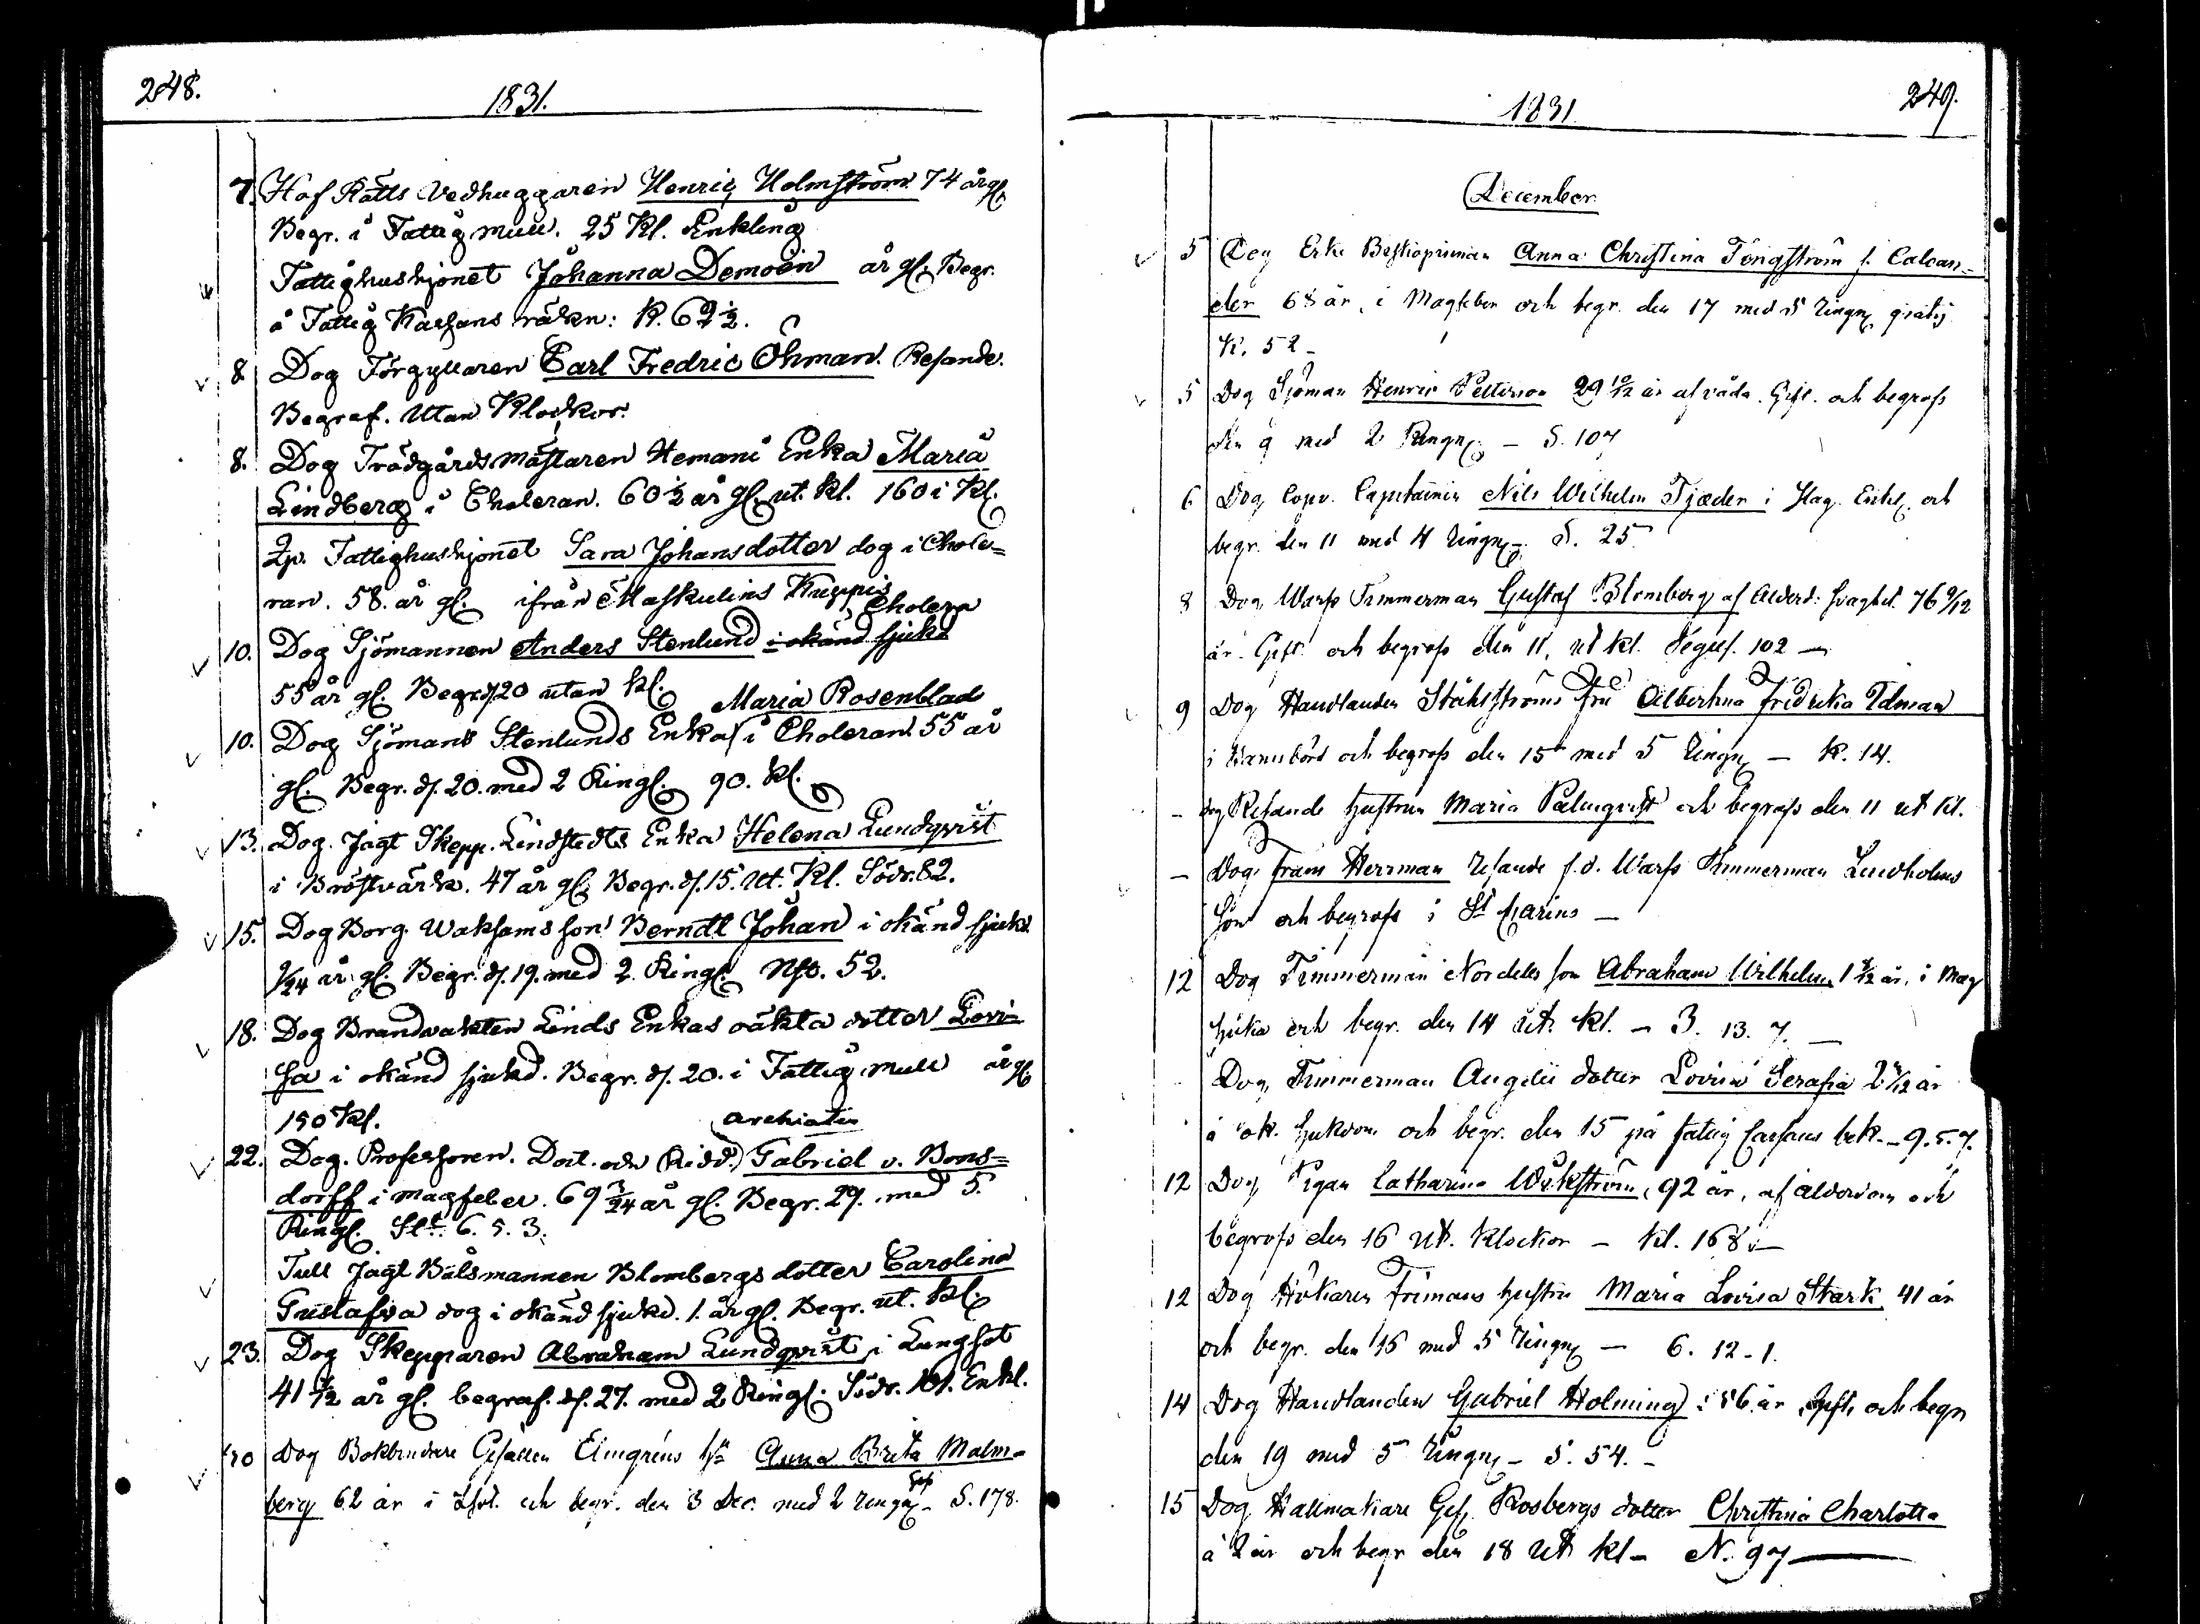 248.
1831.
7. Hof Rätts Vedhuggaren Henric Holmström 74 år gl.
Begr. i Fattig mull. 25 Kl. Enkling
Fattighushjonet Johanna Demoen år gl. Begr.
å Fattig Kassans räkn: K. 62½.
8 Dog Förgyllaren Carl Fredric Öhman. Resande.
Begraf. Utan Klockor.
8. Dog Trädgårdsmästaren Hemani Enka Maria
Lindberg i Choleran. 60½ år gl. ut. kl. 160 i Kl.
Fattighushjonet Sara Johansdotter dog i Chole=
ran. 58. år gl. ifrån Maskulins Kuppis
Cholera
10. Dog Sjömannen Anders Stenlund i okänd sjukd
55 år gl. Begr. d. 20 utan Kl.
Maria Rosenblad
10. Dog Sjömans Stenlunds Enka i Choleran. 55 år
gl. Begr. d. 20. med 2 Ringl. 90. Kl.
13. Dog. Jagt Skepp. Lindstedts Enka Helena Lundqvist
i Bröstvärk. 47 år gl. Begr. d. 15. Ut. Kl. Södr. 82.
15. Dog Borg. Waksams son Berndt Johan i okänd sjukd
9/24 år gl. Begr. d. 19. med 2. Ringl. Nst. 52.
18. Dog Brandvakten Linds Enkas oäkta dotter Lovi=
sa i okänd sjukd. Begr. d. 20. i Fattig mull år gl.
150 Kl.
archiater
22. Dog. Professoren. Doct. och Ridd. Gabriel v. Bons=
dorff i magfeber. 69 3/24 år gl. Begr. 29. med 5.
Ringl. Slt. 6. 5. 3.
Tull Jagt Båtsmannen Blombergs dotter Carolina
Gustafva dog i okänd sjukd. 1. år gl. Begr. ut. Kl.
23. Dog Skepparen Abraham Lundqvist i Lungsot
41½ år gl. begraf. d. 27. med 2 Ringl. Södr. 101. Enkl.
30 Dog Bokbindare Gesällen Elmgrens hu Anna Brita Malm-
berg 62 år i och begr. den 3 Dec. med 2 ringn. S. 178.
249.
1831
December
5 Dog Enke Anna Christina Tongström f. Caloan-
der 68 år, i Magfeber och begr. den 17 med 5 ringn. gratis
K. 52 -
5 Dog Sjöman Henric Petterson 29 10/12 år af våda. Gift. och begrofs
den 9 med 2 Ringn. - S. 107
6 Dog Capitainen Nils Wilhelm Tjæder i Slag. Enkl. och
begr. den 11 med 4 ringn. - S. 25
8 Dog Warfs Timmerman Gustaf Blomberg af Ålderd: svaghet. 76 9/12
år. Gift. och begrofs den 11, ut kl. 102 -
9 Dog Handlanden Ståhlströms fru Albertina Fredrika Idman
i Barnsbörd och begrofs den 15 med 5 ringn. - K. 14.
- dog Resande hustrun Maria Palmqvist och begrofs den 11 ut kl.
- Dog Frans Herrman resande f.d. Warfs Timmerman Lundholms
son och begrofs i St Marins -
12 Dog Timmerman Nordells son Abraham Wilhelm 1 år, i Mag
sjuka och begr. den 14 ut. kl. - 3. 13. 7. -
Dog Timmerman Augelii dotter Lovisa Serafia 2 år
i ok. sjukdom och begr. den 15 på fattig Cassans bek. - 9. 5. 7.
12 Dog Pigan Catharina Wikström, 92 år, af ålderdom och
begrofs den 16 Ut. Klockor - Kl. 168. -
12 Dog Hökaren Frimans hustru Maria Lovisa Stark 41 år
och begr. den 16 med 5 ringn. - 6. 12 - 1.
14 Dog Handlanden Gabriel Holming: 56 år, Gift, och begr.
den 19 med 5 ringn. - S. 54. -
15 Dog Gef. Rosbergs dotter Christina Charlotta
à 2 år och begr den 18 Ut kl - N. 97